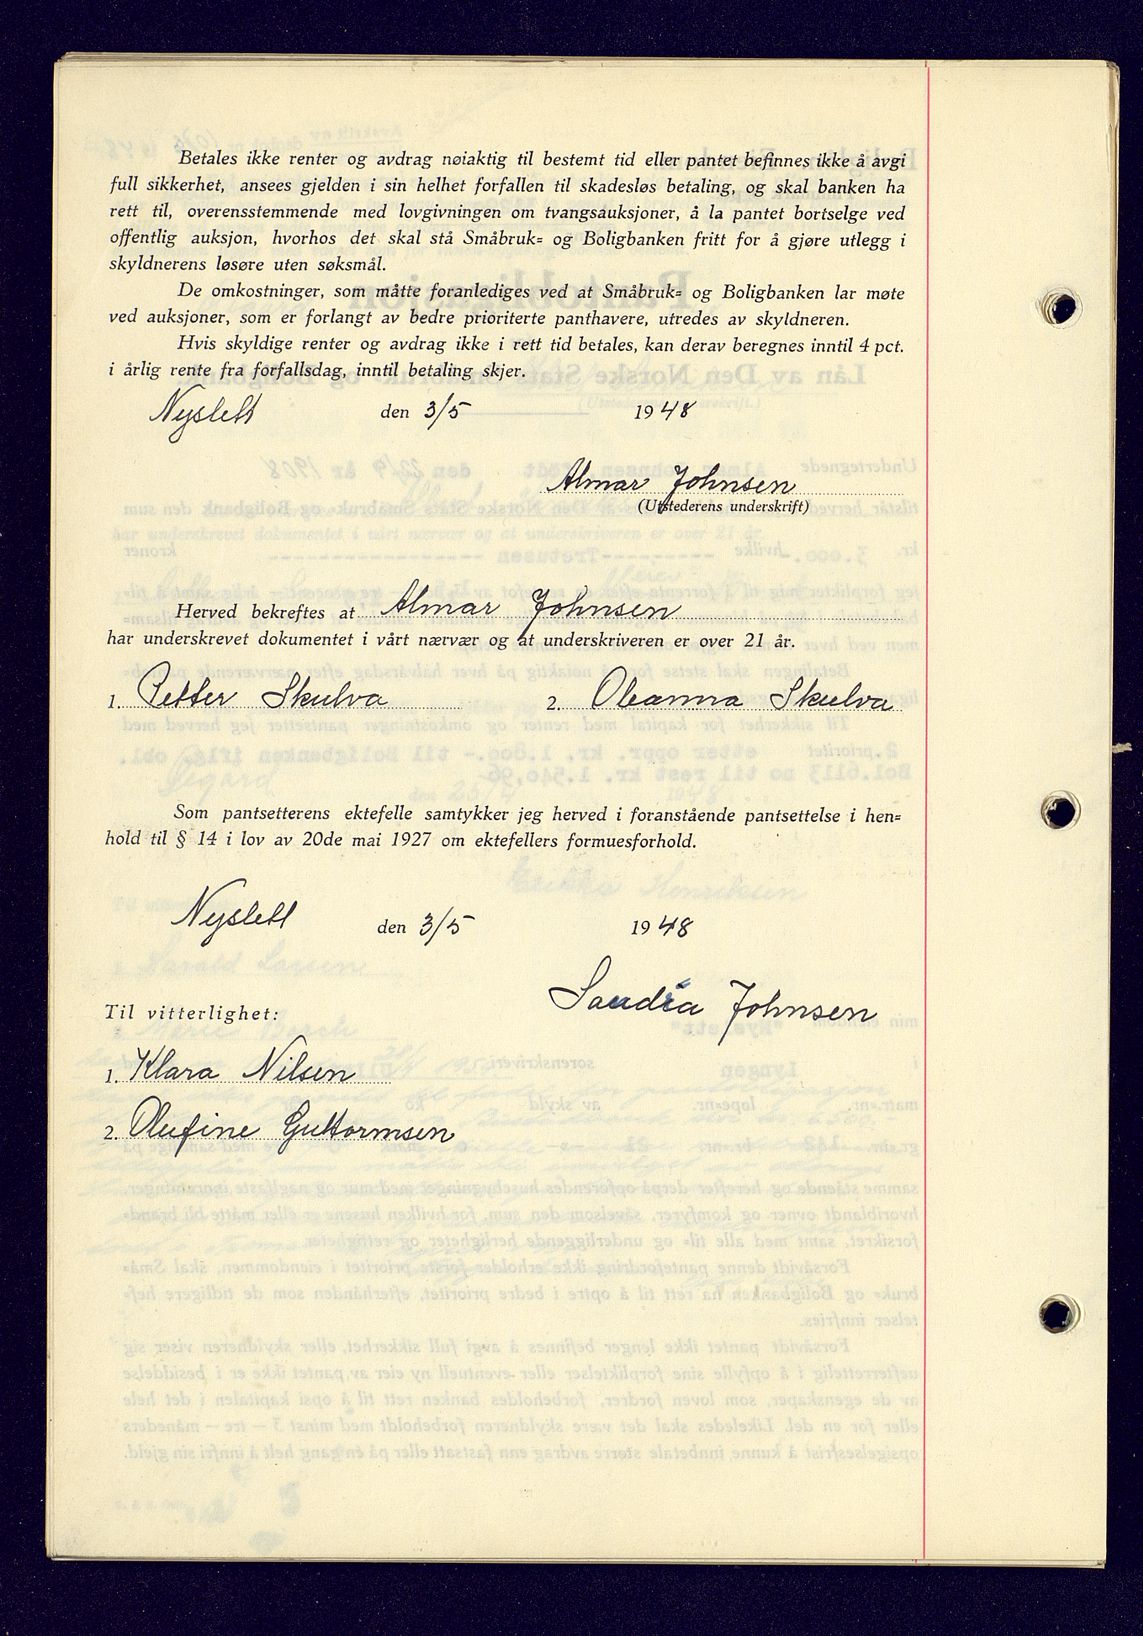 Betales ikke renter og avdrag nøiaktig til bestemt tid eller pantet befinnes ikke å avgi
full sikkerhet, ansees gjelden i sin helhet forfallen til skadesløs betaling, og skal banken ha
rett til, overensstemmende med lovgivningen om tvangsauksjoner, å la pantet bortselge ved
offentlig auksjon, hvorhos det skal stå Småbruk= og Boligbanken fritt for å gjøre utlegg i
skyldnerens løsøre uten søksmål.
De omkostninger, som måtte foranlediges ved at Småbruk= og Boligbanken lar møte
ved auksjoner, som er forlangt av bedre prioriterte panthavere, utredes av skyldneren.
Hvis skyldige renter og avdrag ikke i rett tid betales, kan derav beregnes inntil 4 pct.
i årlig rente fra forfallsdag, inntil betaling skjer.
Nyslett den 3/5 1948
Almar Johnsen
(Utstederens underskrift)
Herved bekreftes at Almar Johnsen
har underskrevet dokumentet i vårt nærvær og at underskriveren er over 21 år.
1. Petter Skulva 2. Oleanna Skulva
Som pantsetterens ektefelle samtykker jeg herved i foranstående pantsettelse i hen=
hold til § 14 i lov av 20de mai 1927 om ektefellers formuesforhold.
Nyslett den 3/5 1948
Sandra Johnsen
Til vitterlighet:
1. Klara Nilsen
2. Olufine Guttormsen